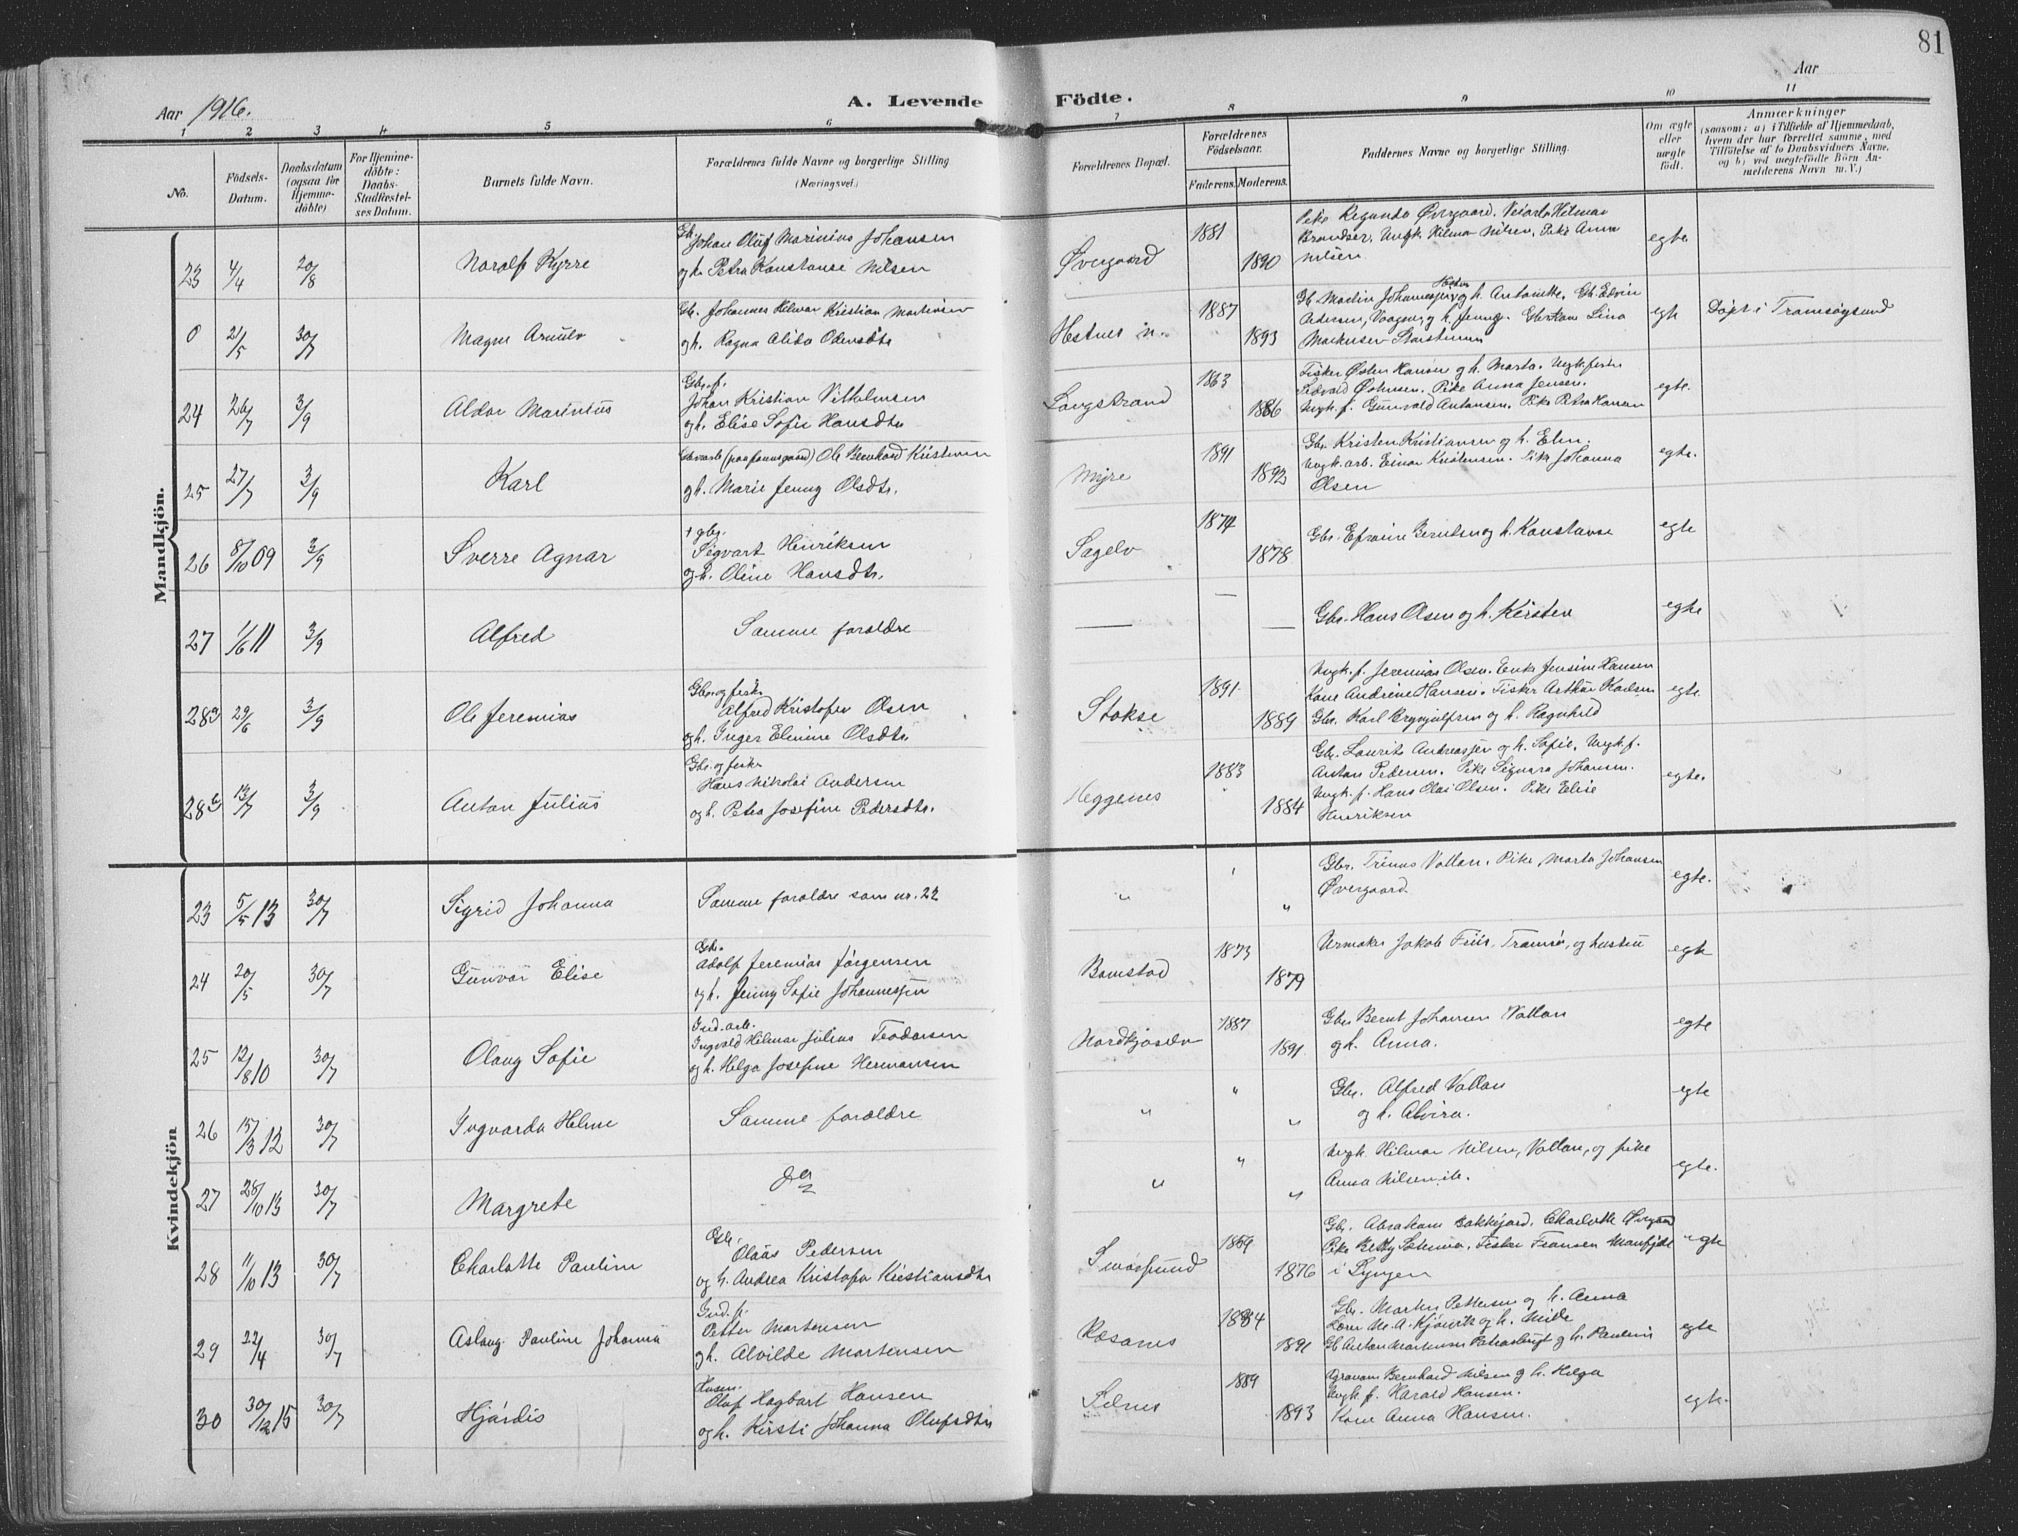 81
Aar 1916.
A. Levende Födte.
Aar
1 2 3 4 5 6 7 8 9 10 11
No.
Födsels-Datum.
Daabsdatum (ogsaa for Hjemme-döbte)
For Hjemme-döbte: Daabs-Stadfæstel-ses Datum.
Barnets fulde Navn.
Forældrenes fulde Navne og borgerlige Stilling (Næringsvei.)
Forældrenes Bopæl.
Forældrenes Födselsaar.
Faderens. Moderens.
Faddernes Navne og borgerlige Stilling.
Om ægte eller uægte födt.
Anmærkninger
(saasom: a) i Tilfælde af Hjemmedaab,
hvem der har forrettet samme, med
Tilföielse af to Daabsvidners Navne.
og b) ved uegtefödte Börn An-
melderens Navn m. V.)
Mandkjön.
23 4/4 20/8 Noralf Kyrre
Gb. Johan Oluf Marinius Johansen
og h. Petra Konstanse Nilsen
Øvergaard 1881 1890
Pike Regunda Øvergaard. Hilmar
Brandser. Ungk. Hilmar Nilsen. Pike Anna
Nilsen
egte
0 21/5 30/7 Magne Arnulv
Gb. Johannes Helmar Kristian Martinsen
og h. Ragna Alida Odinsdtr
Hestnes 1887 1893
Gb. Martin Johannessen og h. Antonette. Gb. Edvin
Pedersen, Vaagnes, og h. Jenny. Lina
Markussen
egte
Døpt i Tromsøysund
24 26/7 3/9 Aldor Marinius
Gbr. f.
Johan Kristian Vilhelmsen
og h. Elise Sofie Hansdtr
Langstrand 1863 1886
Fisker Østen Hansen og h. Marta. Ungk. fisker
Sedvald Johnsen. Pike Anna Jensen.
Ungk. f. Gunvald Antonsen. Pike Petra Hansen
egte.
25 27/7 3/9 Karl
Ole Bernhard Kristensen
og h. Marie Jenny Olsdtr.
Myre 1891 1892
Gbr. Kristen Kristiansen og h. Elen.
Ungk. arb. Einar Kristensen. Pike Johanna
Olsen
egte.
26 8/10 09 3/9 Sverre Agnar
† gbr.
Sigvart Henriksen
og h. Oline Hansdtr.
Sagelv 1874 1878
Gbr. Efraim Berntsen og h. Konstanse
egte
27 1/6 11 3/9 Alfred
Samme forældre
— — —
Gbr. Hans Olsen og h. Kirsten
egte
28a 29/6 3/9 Ole Jeremias
Gbr. og fisk.
Alfred Kristofer Olsen
og h. Inger Elmine Olsdtr.
Stakse 1891 1889
Ungk. f. Jeremias Olsen. Enke Jensine Hansen
Kone Andrine Hansen. Fisker Arthur Karlsen
Gbr. Karl Brynjulfsen og h. Ragnhild
egte
28b 13/7 3/9 Anton Julius
Gbr. og fisk.
Hans Nikolai Andersen
og h. Petra Josefine Pedersdtr.
Heggenes 1883 1884
Gbr. Laurits Andreassen og h. Sofie. Ungk. f.
Anton Pedersen. Pike Signora Johansen.
Ungk. f. Hans Olai Olsen. Pike Elise
Henriksen
egte.
Kvindekjön
23 5/5 13 30/7 Sigrid Johanna
Samme forældre som nr. 22
" " "
Gbr. Trinus Vollan. Pike Marta Johansen
Øvergaard.
egte.
24 20/5 30/7 Gunvor Elise
Gbr.
Adolf Jeremias Jørgensen
og h. Jenny Sofie Johannessen
Bomstad 1873 1879
Urmaker Jakob Friis, Tromsø, og hustru
egte
25 12/8 10 30/7 Olaug Sofie
Ind. arb.
Ingvald Hilmar Julius Teodorsen
og h. Helga Josefine Hermansen
Nordkjoselv 1887 1891
Gbr. Bernt Johansen Vollan
og h. Anna.
egte
26 15/3 12 30/7 Ingvarda Helene
Samme forældre
" " "
Gbr. Alfred Vollan
og h. Alvira.
egte
27 28/10 13 30/7 Margrete
do
" " "
Ungk. Hilmar Nilsen, Vollan, og pike
Anna Nilsen
egte.
28 11/10 13 30/7 Charlotte Pauline
Gbr.
Olaus Pedersen
og h. Andrea Kristofa Kristiansdtr
Smørsund 1869 1876
Gbr. Abraham Bakkejord. Charlotte Øvergaard
Pike Betty. Fisker Fransen Manfjeld
i Lyngen
egte
29 22/4 30/7 Aslaug Pauline Johanna
Ind. f.
Petter Mortensen
og h. Alvilde Mortensen
Røsanes 1884 1891
Gbr. Martin Pettersen og h. Anna
Lærer M. A. Kjönvik og h. Milde
Gb Anton Martinsen og h. Pauline
egte
30 30/12 15 30/7 Hjördis
Husm.
Olaf Hagbart Hansen
og h. Kirsti Johanna Olufsdtr
Selnes 1889 1893
Bernhard Nilsen og h. Helga
Ungk. f. Harald Hansen.
Kone Anna Hansen.
egte.